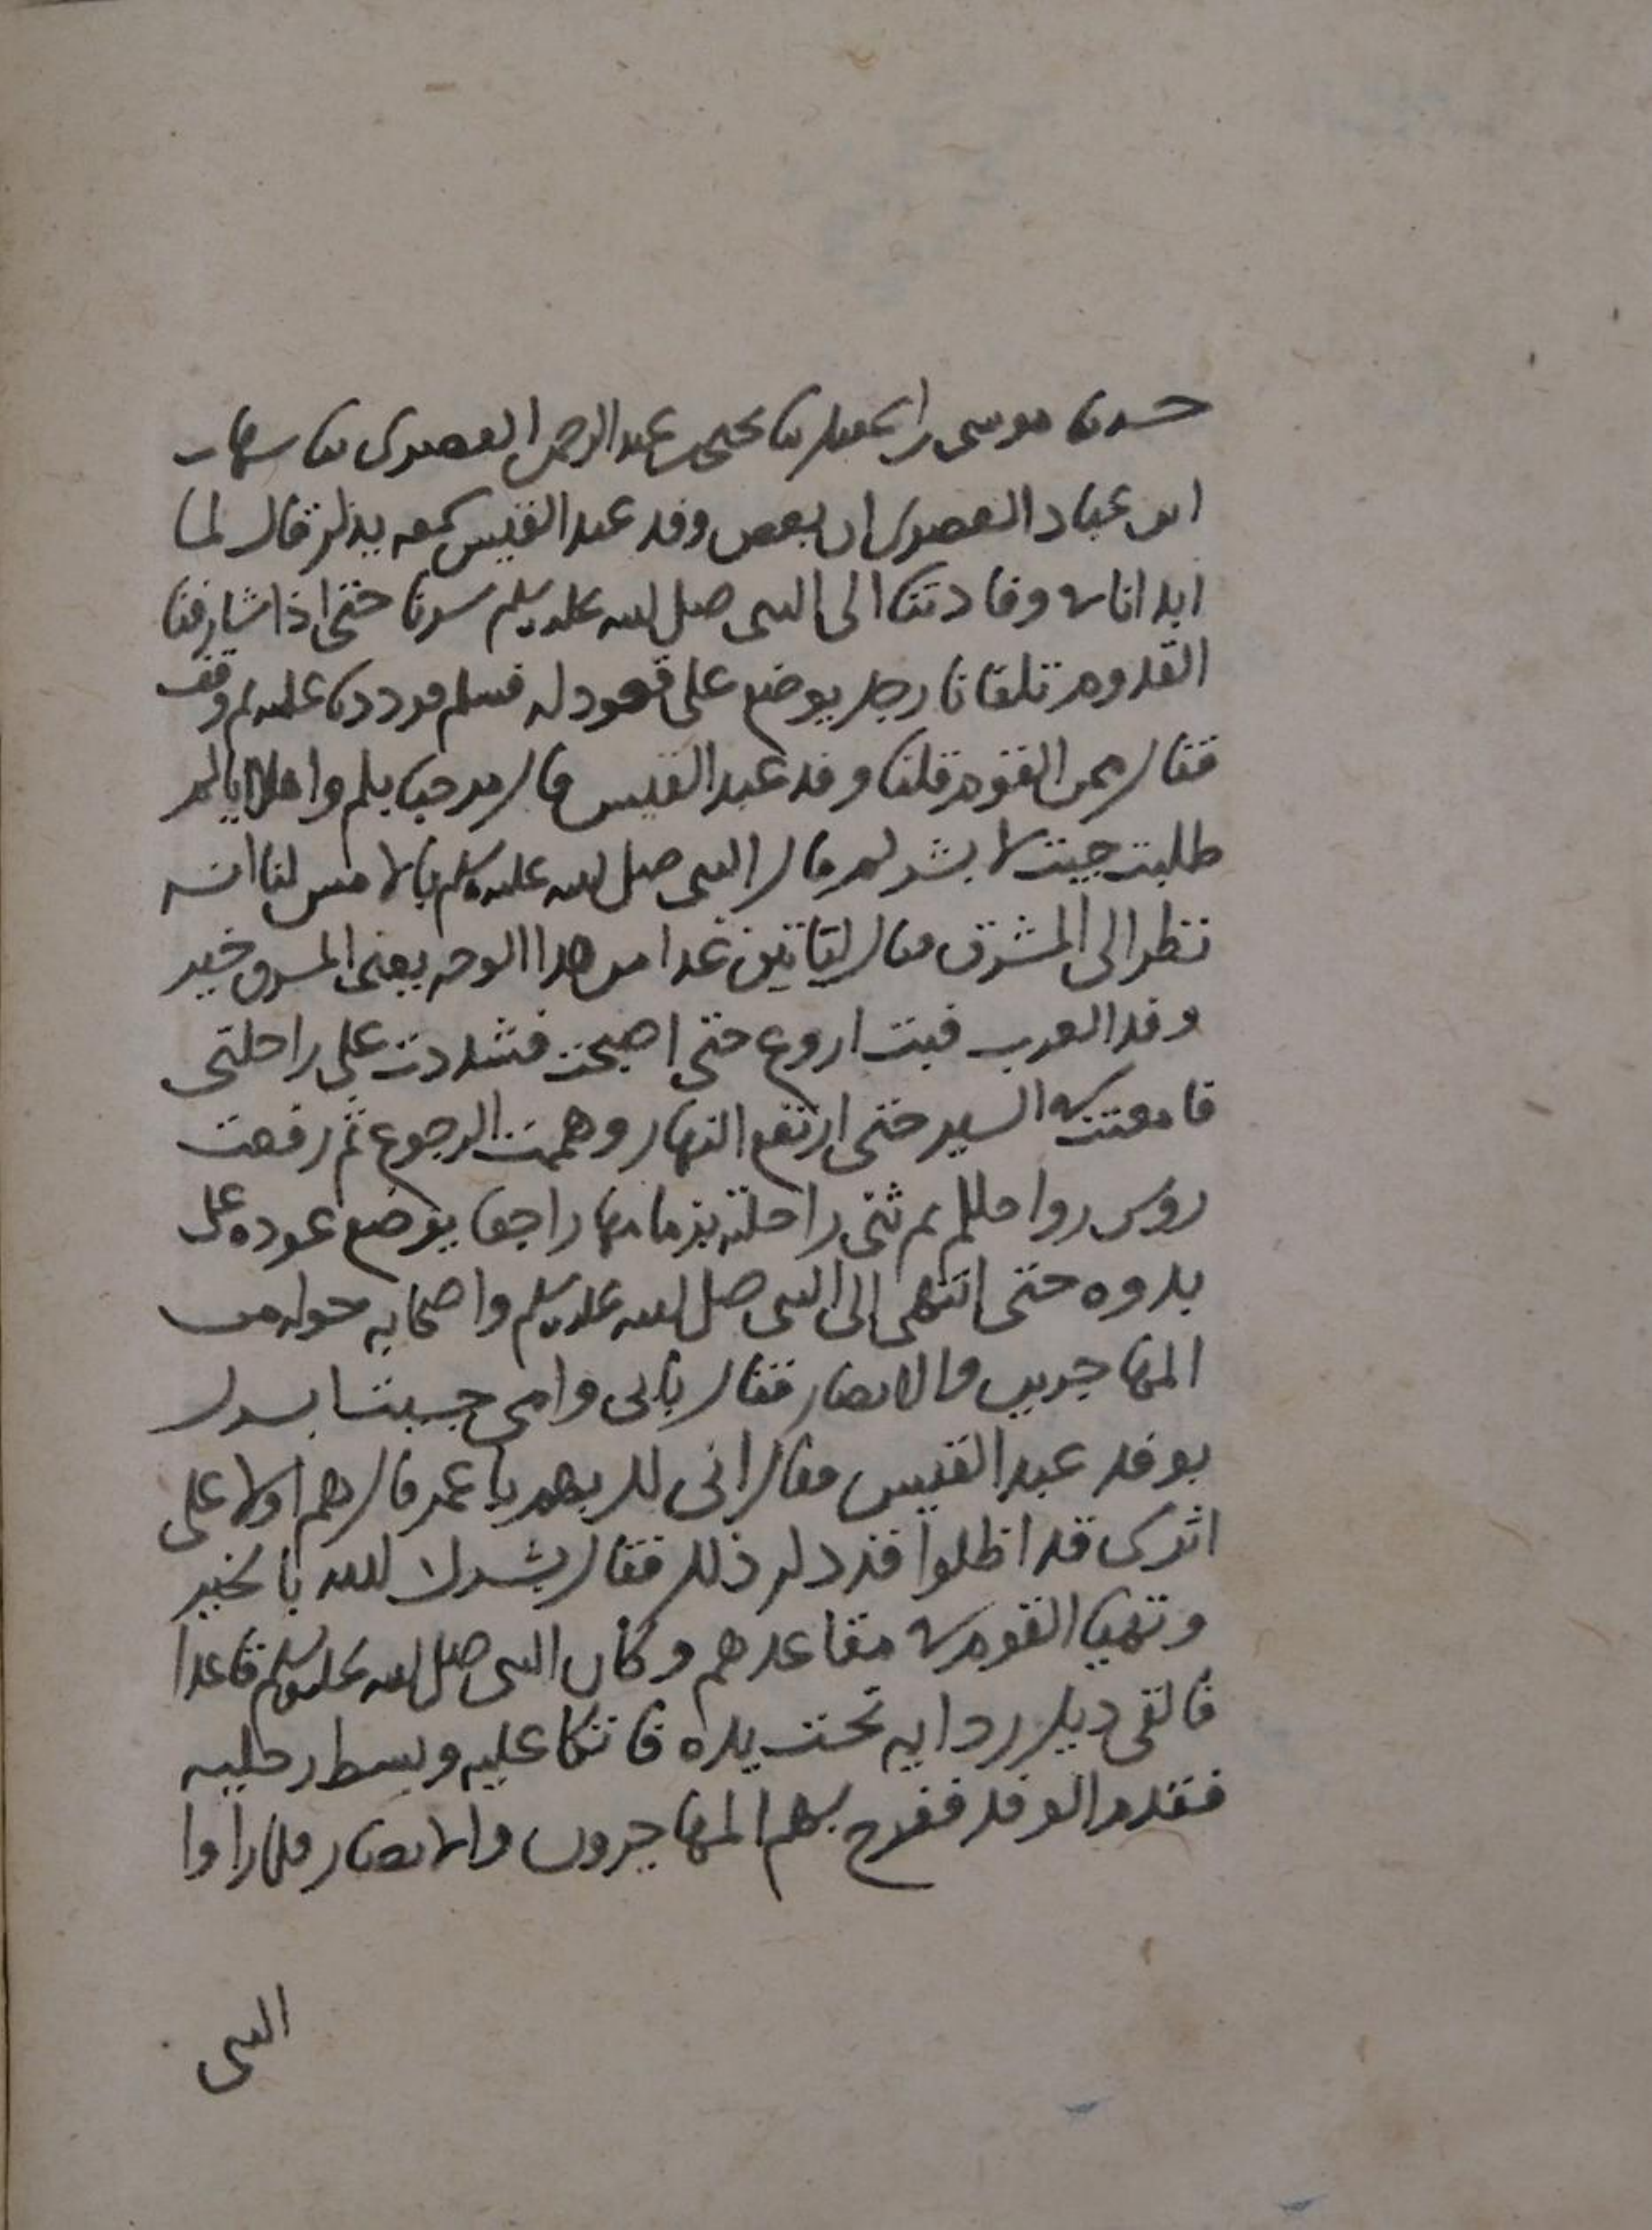 حدثنا موسى بن اسمعيل ثنا يحيى بن عبد الرحمن العصرى ثنا شهاب
ابن عباد العصرى ان بعض وفد عبد القيس سمعه يذكر قال لما
ابدانا في وفادتنا الى النبى صلى الله عليه وسلم سرنا حتى اذا شارفنا
القدوم تلقانا رجل يوضع على قعود له فسلم فرددنا عليه ثم وقف
فقال ممن القوم قلنا وفد عبد القيس قال مرحبا بكم واهلا اياكم
طلبت جيت لابشركم قال النبى صلى الله عليه وسلم بالامس لنا انه
نظر الى المشرق فقال لياتين غدا من هذا الوجه يعنى المشرق خير
وفد العرب فبت اروع حتى اصبحت فشددت على راحلتى
فامعنت في السير حتى ارتفع النهار وهممت الرجوع ثم رفعت
روس رواحلكم ثم ثنى راحلته بزمامها راجعا يوضع عوده على
بدوه حتى انتهى الى النبى صلى الله عليه وسلم واصحابه حوله من
المهاجرين والانصار فقال بابى وامى جيت ابشرك
بوفد عبد القيس فقال انى لك بهم يا عمر قال هم اولا على
اثرى قد اظلوا فذكر ذلك فقال بشرك الله بالخير
وتهيا القوم في مقاعدهم وكان النبى صلى الله عليه وسلم قاعدا
فالقى ذيل ردايه تحت يده فاتكا عليه وبسط رجليه
فقدم الوفد ففرح بهم المهاجرون والانصار فلما راوا
النبى